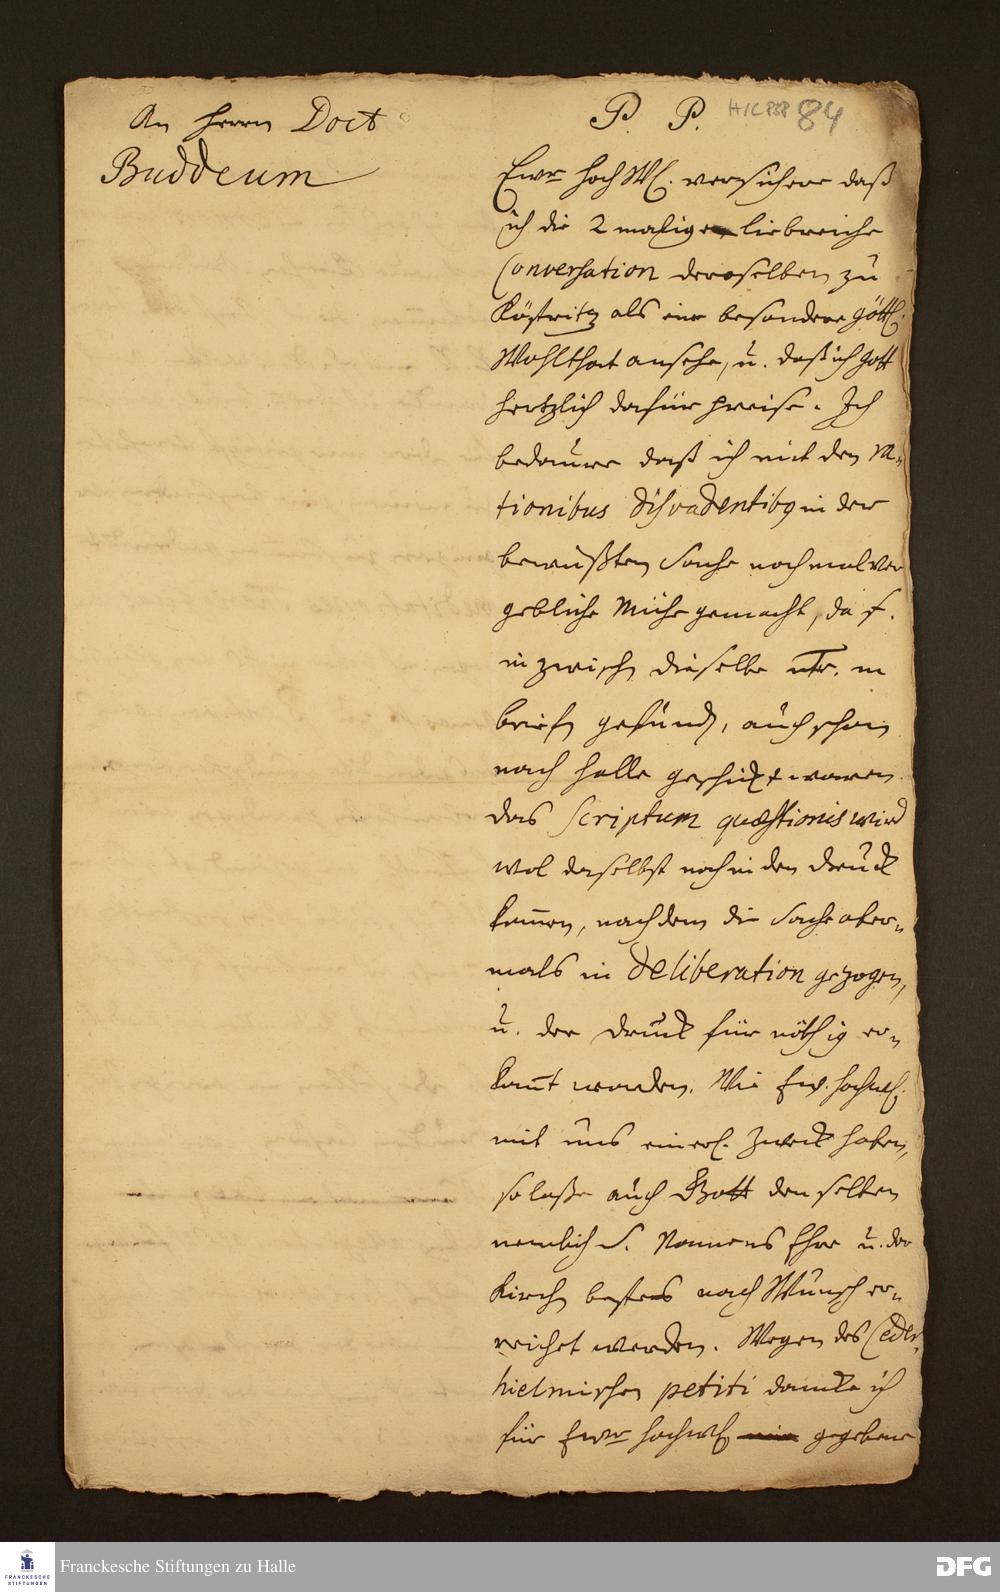 An Herrn Doct
Buddeum
P. P.
H/C 838 84
Ewr HochW. versichere daß
ich die 2 malige liebreiche
Conversation deroselben zu
Köstritz als eine besondere göttl.
Wohlthat ansehe, u. daß ich Gott
hertzlich dafür preise. Ich
bedaure daß ich mit den
tionibus dissvadentibq in der
bewußten Sache nochmal ver
gebliche Mühe gemacht, da s.
in zwisch dieselbe in
briefn gefund, auch schon
nach Halle geschickt waren.
das scriptum quæstionis wird
wol daselbst noch in den druck
kom̄en, nachdem die Sache aber-
mals in deliberation gezogen,
u. der druck für nöthig er-
kan̄t worden. Wie Ew. Hochw.
mit uns einerl. Zweck haben,
so laße auch Gott denselben
nemlich S. Namens Ehre u. der
Kirch bestes nach Wunsch er-
reichet werden. Wegen des Ceder-
hielmischen petiti dancke ich
für Ewr Hochw gegebene
Franckesche Stiftungen zu Halle
FRANCKESCHE
STIFTUNGEN
DFG